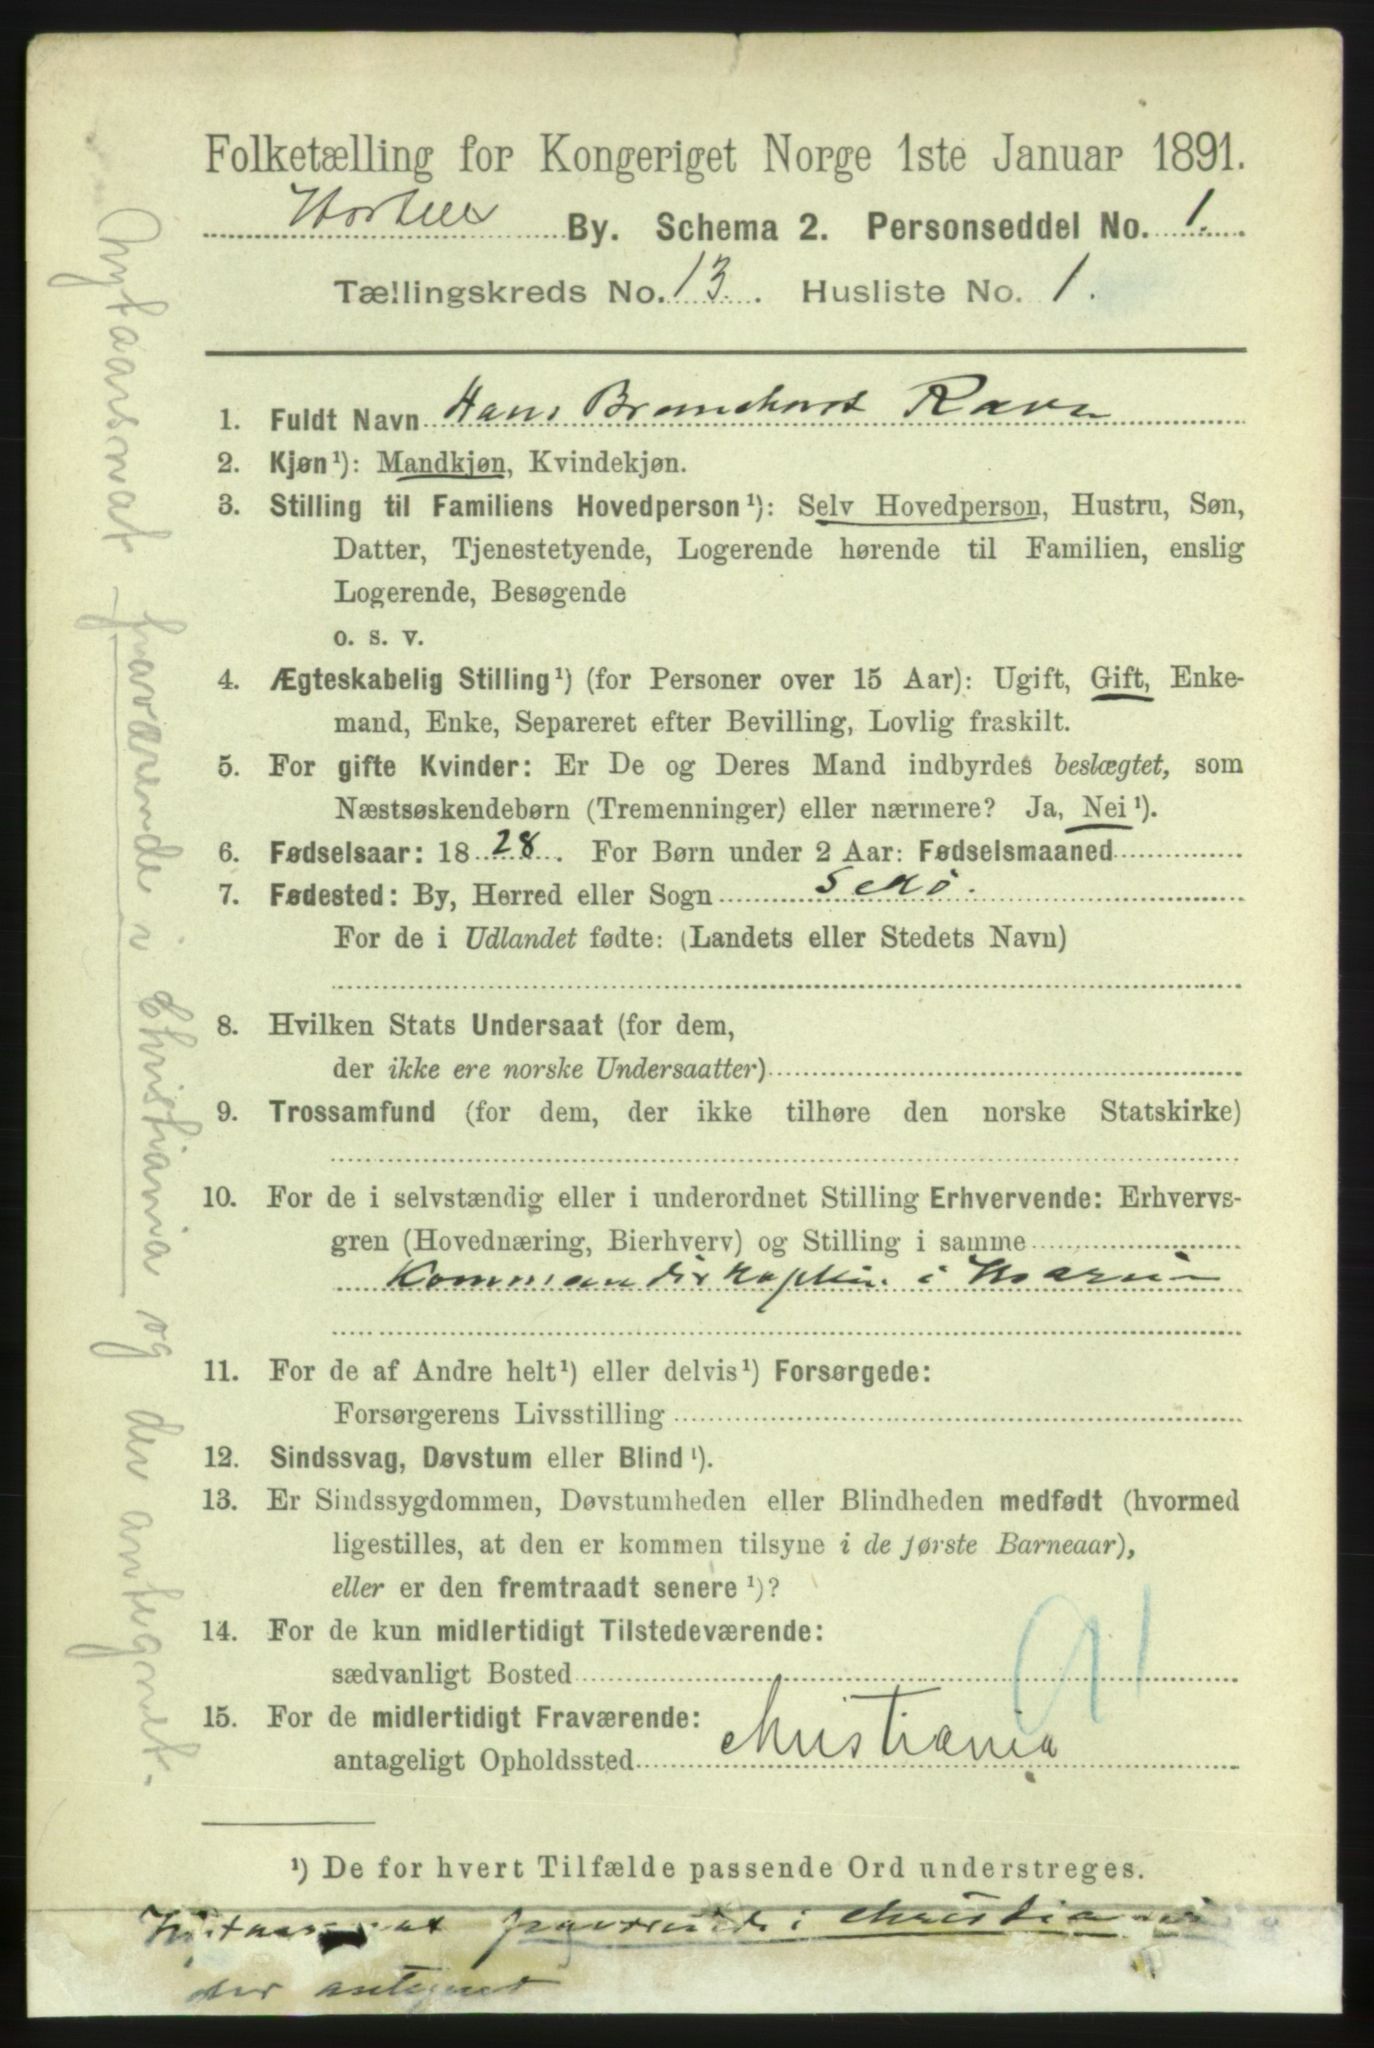 Folketælling for Kongeriget Norge 1ste Januar 1891.
Horten By. Schema 2. Personseddel No. 1.
Tællingskreds No. 13. Husliste No. 1.
1. Fuldt Navn Hans Bronchorst Ravn
2. Kjøn¹): Mandkjøn, Kvindekjøn.
3. Stilling til Familiens Hovedperson¹): Selv Hovedperson, Hustru, Søn,
Datter, Tjenestetyende, Logerende hørende til Familien, enslig
Logerende, Besøgende
o. s. v.
4. Ægteskabelig Stilling¹) (for Personer over 15 Aar): Ugift, Gift, Enke-
mand, Enke, Separeret efter Bevilling, Lovlig fraskilt.
5. For gifte Kvinder: Er De og Deres Mand indbyrdes beslægtet, som
Næstsøskendebørn (Tremenninger) eller nærmere? Ja, Nei¹).
6. Fødselsaar: 1828. For Børn under 2 Aar: Fødselsmaaned
7. Fødested: By, Herred eller Sogn
For de i Udlandet fødte: (Landets eller Stedets Navn)
8. Hvilken Stats Undersaat (for dem,
der ikke ere norske Undersaatter)
9. Trossamfund (for dem, der ikke tilhøre den norske Statskirke)
10. For de i selvstændig eller i underordnet Stilling Erhvervende: Erhvervs-
gren (Hovednæring, Bierhverv) og Stilling i samme
i Marin
11. For de af Andre helt¹) eller delvis¹) Forsørgede:
Forsørgerens Livsstilling
12. Sindssvag, Døvstum eller Blind¹).
13. Er Sindssygdommen, Døvstumheden eller Blindheden medfødt (hvormed
ligestilles, at den er kommen tilsyne i de første Barneaar),
eller er den fremtraadt senere¹)?
14. For de kun midlertidigt Tilstedeværende:
sædvanligt Bosted
15. For de midlertidigt Fraværende:
antageligt Opholdssted Christiania
¹) De for hvert Tilfælde passende Ord understreges.
Nytaarsnat fraværende i Christiania
der antegnet
Nytaarsnat fraværende i Christiania og der antegnet.